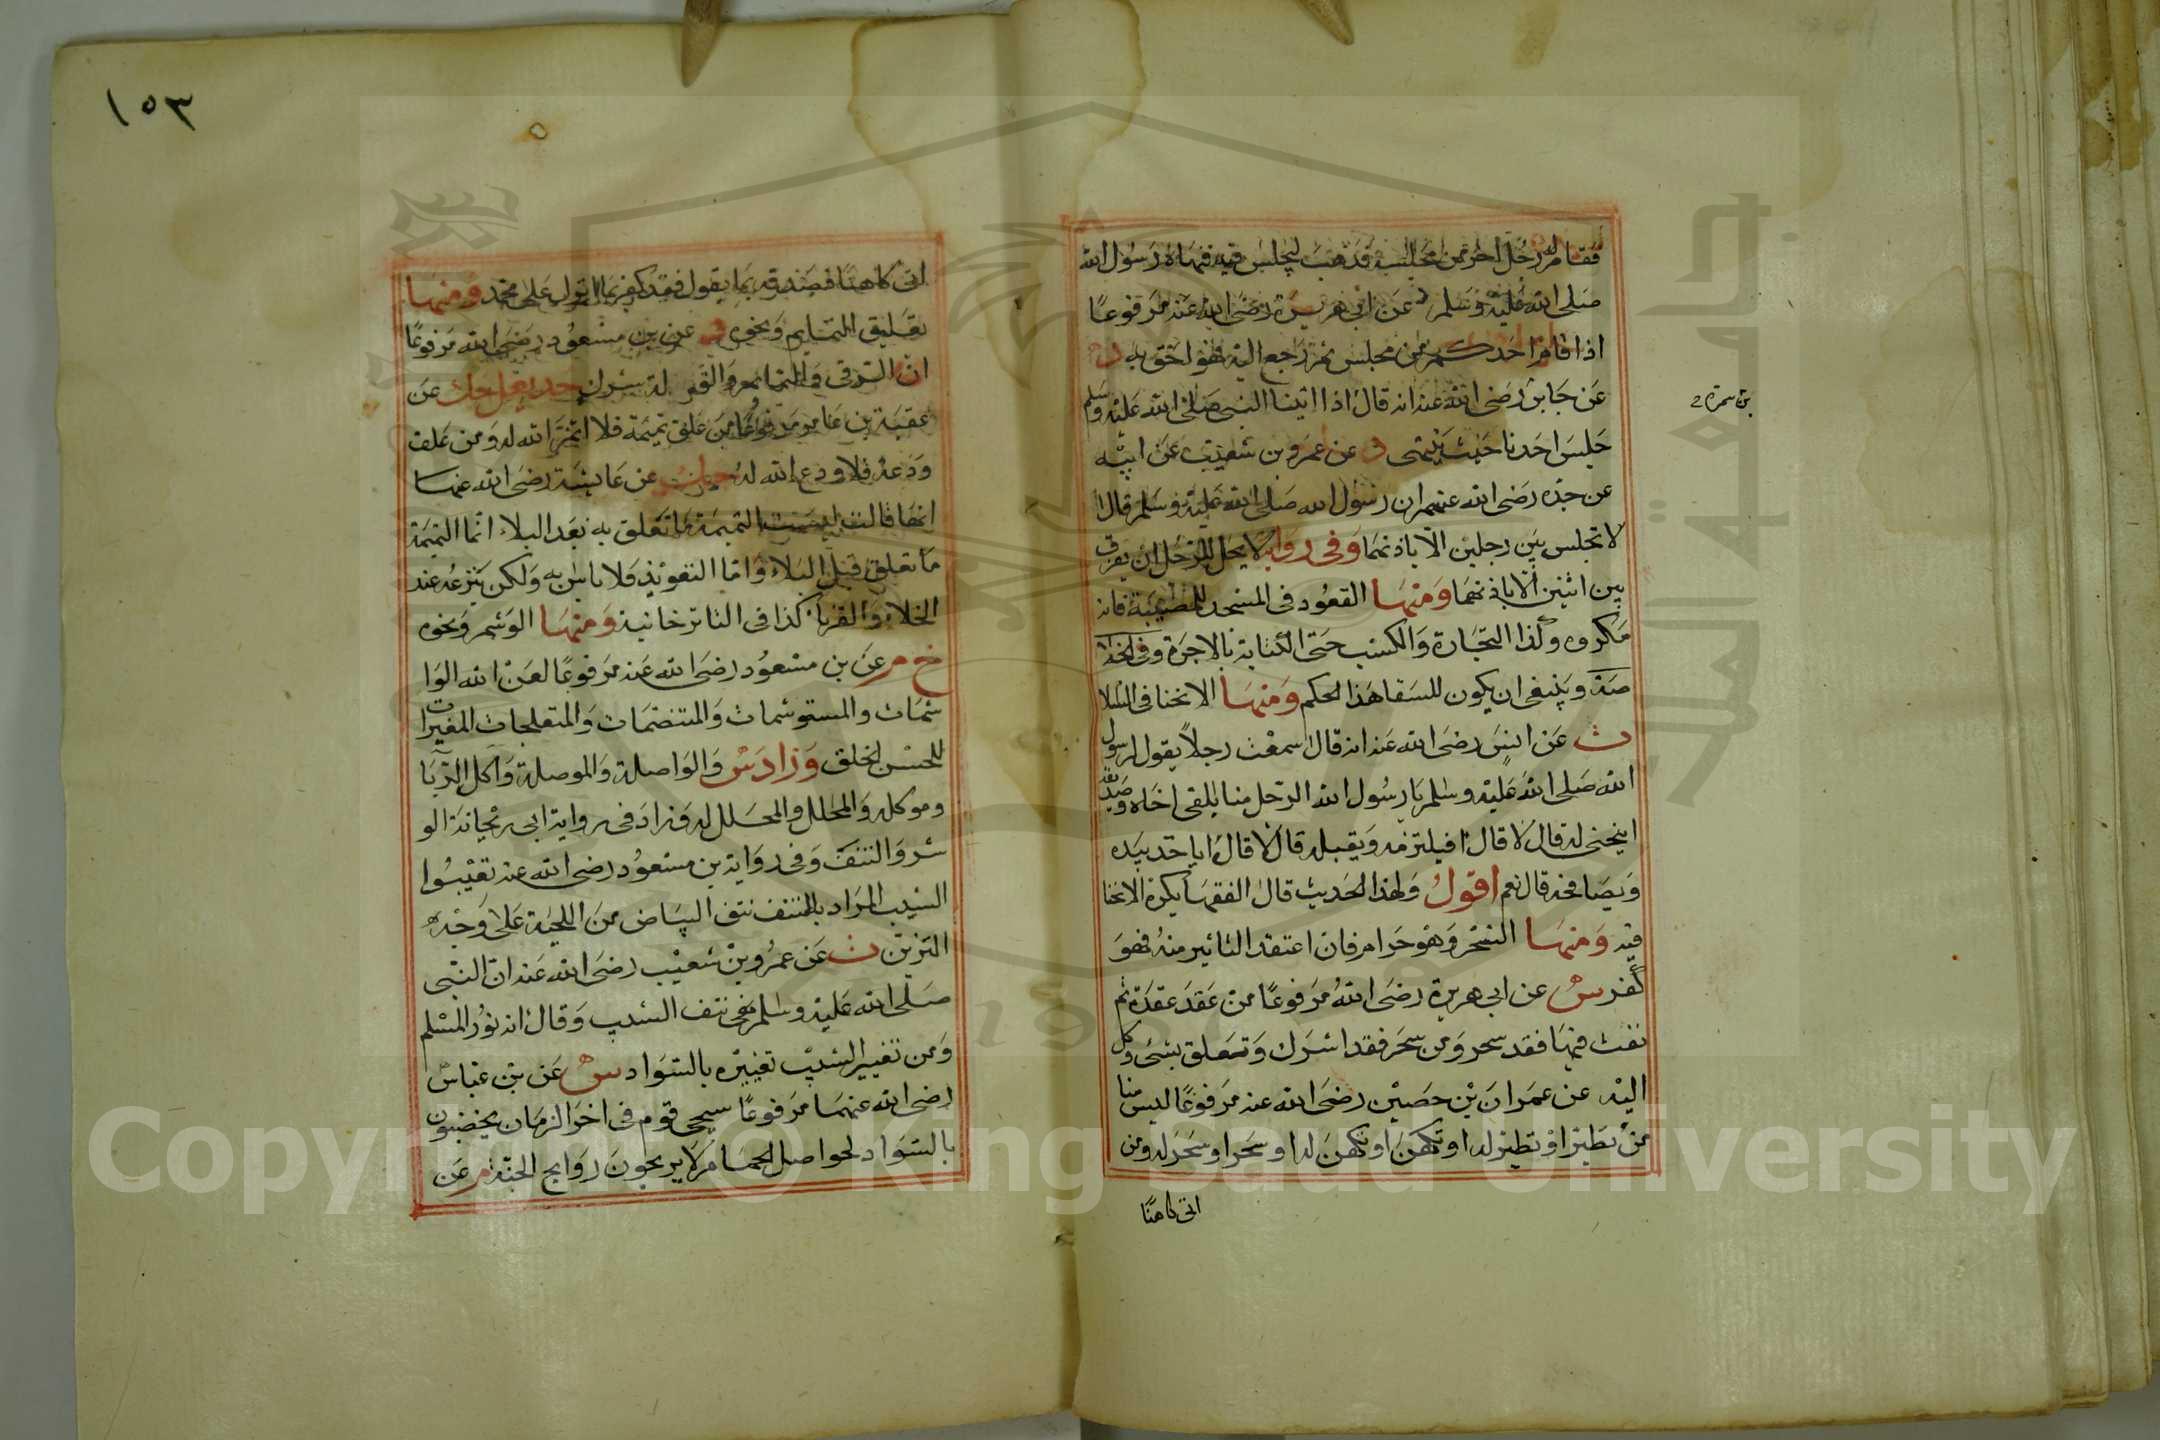 فقام له رجل اخر من مجلسه فذهب ليجلس فيه فنهاه رسول الله
صلى الله عليه وسلم م عن ابى هريرة رضى الله عنه مرفوعا
اذا قام احدكم من مجلس ثم رجع اليه فهو احق به د
عن جابر رضى الله عنه انه قال اذا اتينا النبى صلى الله عليه وسلم
بن سمرة
جلس احدنا حيث ينتهى د عن عمرو بن شعيب عن ابيه
عن جده رضى الله عنهم ان رسول الله صلى الله عليه وسلم قال
لا تجلس بين رجلين الا باذنهما وفى رواية لا يحل للرجل ان يفرق
بين اثنين الا باذنهما ومنها القعود فى المسجد للمصيبة فانه
مكروه وكذا التجارة والكسب حتى الكتابة بالاجرة وفى الخلا
صة وينبغى ان يكون للسقا هذا الحكم ومنها الانحنا فى السلا
ت عن انس رضى الله عنه انه قال سمعت رجلا يقول لرسول
الله صلى الله عليه وسلم يا رسول الله الرجل منا يلقى اخاه وصديقه
اينحنى له قال لا قال افيلتزمه ويقبله قال لا قال اياخذ بيده
ويصافحه قال نعم اقول ولهذا الحديث قال الفقها يكره الانحنا
فيه ومنها السحر وهو حرام فان اعتقد التاثير منه فهو
كفر س عن ابى هريرة رضى الله مرفوعا من عقد عقدة ثم
نفث فيها فقد سحر ومن سحر فقد اشرك وتعلق بشئ وكل
اليه عن عمران بن حصين رضى الله عنه مرفوعا ليس منا
من تطير او تطير له او تكهن او تكهن له او سحر او سحر له ومن
اتى كاهنا
١٥٣
اتى كاهنا فصدقه بما يقول فقد كفر بما انزل على محمد ومنها
تعليق التمايم ونحوه د عن بن مسعود رضى الله مرفوعا
ان الرقى والتمايم والتولة شرك حد يعلى حك عن
عقبة بن عامر مرفوعا من علق تميمة فلا اتم الله له ومن علق
ودعة فلا ودع الله له حك عن عايشة رضى الله عنها
انها قالت ليست التميمة ما تعلق به بعد البلاء انما التميمة
ما تعلق قبل البلاء واما التعويذ فلا باس به ولكن ينزعه عند
الخلاء والقربان كذا فى التاترخانية ومنها الوشم ونحوه
خ م عن بن مسعود رضى الله عنه مرفوعا لعن الله الوا
شمات والمستوشمات والمتنصمات والمتفلجات المغيرات
للحسن لخلق وزاد س والواصلة والموصلة وآكل الربا
وموكله والمحلل والمحلل له وزاد فى رواية ابى ريحانة الو
شر والنتف وفى رواية بن مسعود رضى الله عنه تغيير
الشيب المراد بالنتف نتف البياض من اللحية على وجه
التزين ت عن عمرو بن شعيب رضى الله عنه ان النبى
صلى الله عليه وسلم نهى نتف الشيب وقال انه نور المسلم
ومن تغيير الشيب تغييره بالسواد س عن بن عباس
رضى الله عنهما مرفوعا سيجى قوم فى اخر الزمان يخضبون
بالسواد لحواصل الحمام لا يريحون روايح الجنة م عن
Copyright © King Saud University
1957